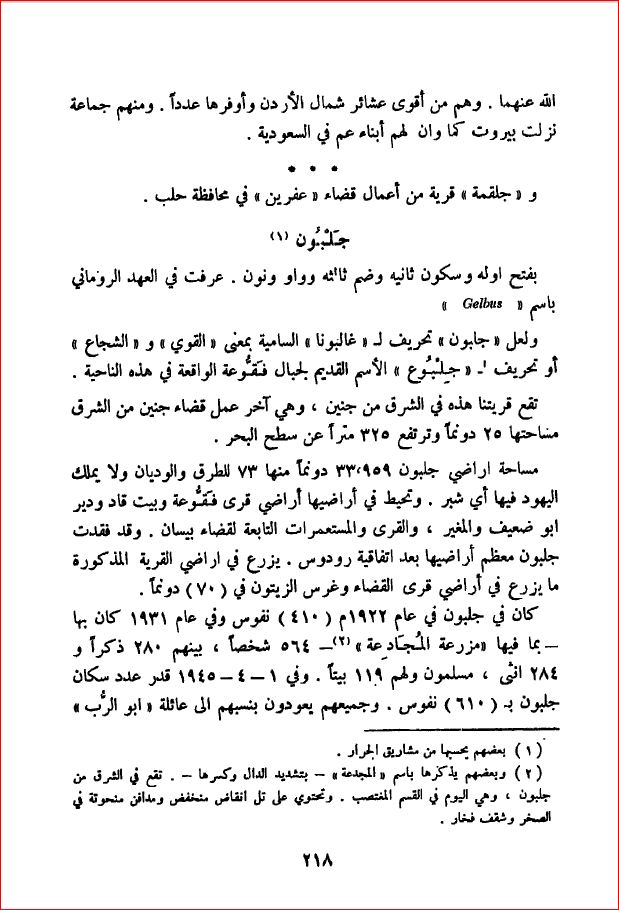 الله عنهما . وهم من أقوى عشائر شمال الأردن وأوفرها عدداً . ومنهم جماعة
نزلت بيروت كما وان لهم أبناء عم في السعودية .
* * *
و « جلقمة » قرية من أعمال قضاء « عفرين » في محافظة حلب .
جَلْبُون (١)
بفتح اوله وسكون ثانيه وضم ثالثه وواو ونون . عرفت في العهد الروماني
باسم « Gelbus »
ولعل « جابون » تحريف لـ « غالبونا » السامية بمعنى « القوي » و « الشجاع »
أو تحريف لـ « جِلْبُوع » الأسم القديم لجبال فَقُّوعة الواقعة في هذه الناحية .
تقع قريتنا هذه في الشرق من جنين ، وهي آخر عمل قضاء جنين من الشرق
مساحتها ٢٥ دونماً وترتفع ٣٢٥ متراً عن سطح البحر .
مساحة اراضي جلبون ٣٣،٩٥٩ دونماً منها ٧٣ للطرق والوديان ولا يملك
اليهود فيها أي شبر . وتحيط في أراضيها أراضي قرى فَقُّوعة وبيت قاد ودير
ابو ضعيف والمغير ، والقرى والمستعمرات التابعة لقضاء بيسان . وقد فقدت
جلبون معظم أراضيها بعد اتفاقية رودوس . يزرع في اراضي القرية المذكورة
ما يزرع في أراضي قرى القضاء وغرس الزيتون في ( ٧٠ ) دونماً .
كان في جلبون في عام ١٩٢٢م ( ٤١٠ ) نفوس وفي عام ١٩٣١ كان بها
– بما فيها «مزرعة المُجَادِعة» (٢) – ٥٦٤ شخصاً ، بينهم ٢٨٠ ذكراً و
٢٨٤ انثى ، مسلمون ولهم ١١٩ بيتاً . وفي ١ – ٤ – ١٩٤٥ قدر عدد سكان
جلبون بـ ( ٦١٠ ) نفوس . وجميعهم يعودون بنسبهم الى عائلة « ابو الرُّب »
( ١ ) بعضهم يحسبها من مشاريق الجرار .
( ٢ ) وبعضهم يذكرها باسم « المجدعة » – بتشديد الدال وكسرها – . تقع في الشرق من
جلبون ، وهي اليوم في القسم المغتصب . وتحتوي على تل انقاض منخفض ومدافن منحوتة في
الصخر وشقف فخار .
٢١٨